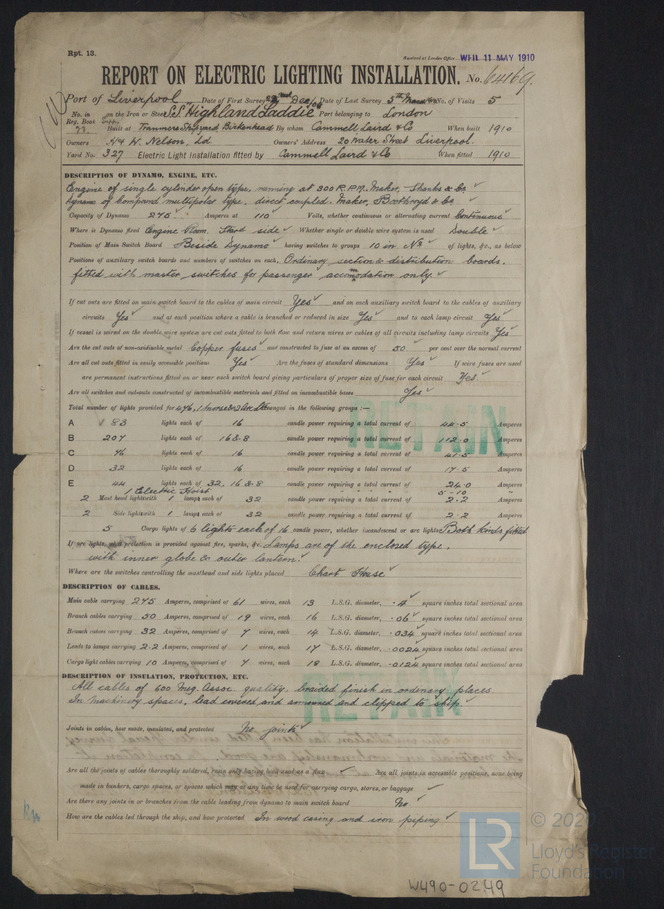 Rpt. 13.
Received at London Office WED. 11 MAY 1910
REPORT ON ELECTRIC LIGHTING INSTALLATION. No. 64169
Port of Liverpool Date of First Survey 22nd Dec/08 Date of Last Survey No. of Visits 5
No. in Reg. Book on the Iron or Steel S.S. "Highland Laddie" Port belonging to London
Built at Birkenhead By whom Cammell Laird & Co When built 1910
Owners H & W. Nelson, Ld Owners' Address 20 Water Street Liverpool.
Yard No. 327 Electric Light Installation fitted by Cammell Laird & Co When fitted 1910
DESCRIPTION OF DYNAMO, ENGINE, ETC.
Engine of single cylinder open type, running at 300 R.P.M. Maker, Shanks & Co
Dynamo of Compound multipolar type, direct coupled. Maker, Boothroyd & Co
Capacity of Dynamo 275 Amperes at 110 Volts, whether continuous or alternating current Continuous
Where is Dynamo fixed Engine Room. Stard side Whether single or double wire system is used Double
Position of Main Switch Board Beside Dynamo having switches to groups 10 in No of lights, &c., as below
Positions of auxiliary switch boards and numbers of switches on each, Ordinary section & distribution boards,
fitted with master switches for passenger accomodation only.
If cut outs are fitted on main switch board to the cables of main circuit Yes and on each auxiliary switch board to the cables of auxiliary
circuits Yes and at each position where a cable is branched or reduced in size Yes and to each lamp circuit Yes
If vessel is wired on the double wire system are cut outs fitted to both flow and return wires or cables of all circuits including lamp circuits Yes
Are the cut outs of non-oxidizable metal Copper fuses and constructed to fuse at an excess of 50 per cent over the normal current
Are all cut outs fitted in easily accessible positions Yes Are the fuses of standard dimensions Yes If wire fuses are used
are permanent instructions fitted on or near each switch board giving particulars of proper size of fuse for each circuit Yes.
Are all switches and cut-outs constructed of incombustible materials and fitted on incombustible bases Yes
Total number of lights provided for 476, arranged in the following groups :—
A 83 lights each of 16 candle power requiring a total current of 48.5 Amperes
B 207 lights each of 16 & 8 candle power requiring a total current of 112.0 Amperes
C 76 lights each of 16 candle power requiring a total current of 41.5 Amperes
D 32 lights each of 16 candle power requiring a total current of 17.5 Amperes
E 44 lights each of 32, 16 & 8 candle power requiring a total current of 24.0 Amperes
1 Electric Hoist " " " " 5-10 "
2 Mast head light with 1 lamp each of 32 candle power requiring a total current of 2.2 Amperes
2 Side light with 1 lamp each of 32 candle power requiring a total current of 2.2 Amperes
5 Cargo lights of 6 lights each of 16 candle power, whether incandescent or arc lights Both kinds fitted
If arc lights, what protection is provided against fire, sparks, &c. Lamps are of the enclosed type,
with inner globe & outer lantern.
Where are the switches controlling the masthead and side lights placed Chart House
DESCRIPTION OF CABLES.
Main cable carrying 275 Amperes, comprised of 61 wires, each 13 L.S.G. diameter, .4 square inches total sectional area
Branch cables carrying 50 Amperes, comprised of 19 wires, each 16 L.S.G. diameter, .06 square inches total sectional area
Branch cables carrying 32 Amperes, comprised of 7 wires, each 14 L.S.G. diameter, .034 square inches total sectional area
Leads to lamps carrying 2.2 Amperes, comprised of 1 wires, each 17 L.S.G. diameter, .0024 square inches total sectional area
Cargo light cables carrying 10 Amperes, comprised of 7 wires, each 18 L.S.G. diameter, .0124 square inches total sectional area
DESCRIPTION OF INSULATION, PROTECTION, ETC.
All cables of 600 Meg. Assoc. quality, braided finish in ordinary places.
In machinery spaces, lead covered and armoured and clipped to ship.
Joints in cables, how made, insulated, and protected No joints
Are all the joints of cables thoroughly soldered, resin only having been used as a flux Are all joints in accessible positions, none being
made in bunkers, cargo spaces, or spaces which may at any time be used for carrying cargo, stores, or baggage
Are there any joints in or branches from the cable leading from dynamo to main switch board No
How are the cables led through the ship, and how protected In wood casing and iron piping
RETAIN
RETAIN
LR
Lloyd's Register
Foundation
W490-0249